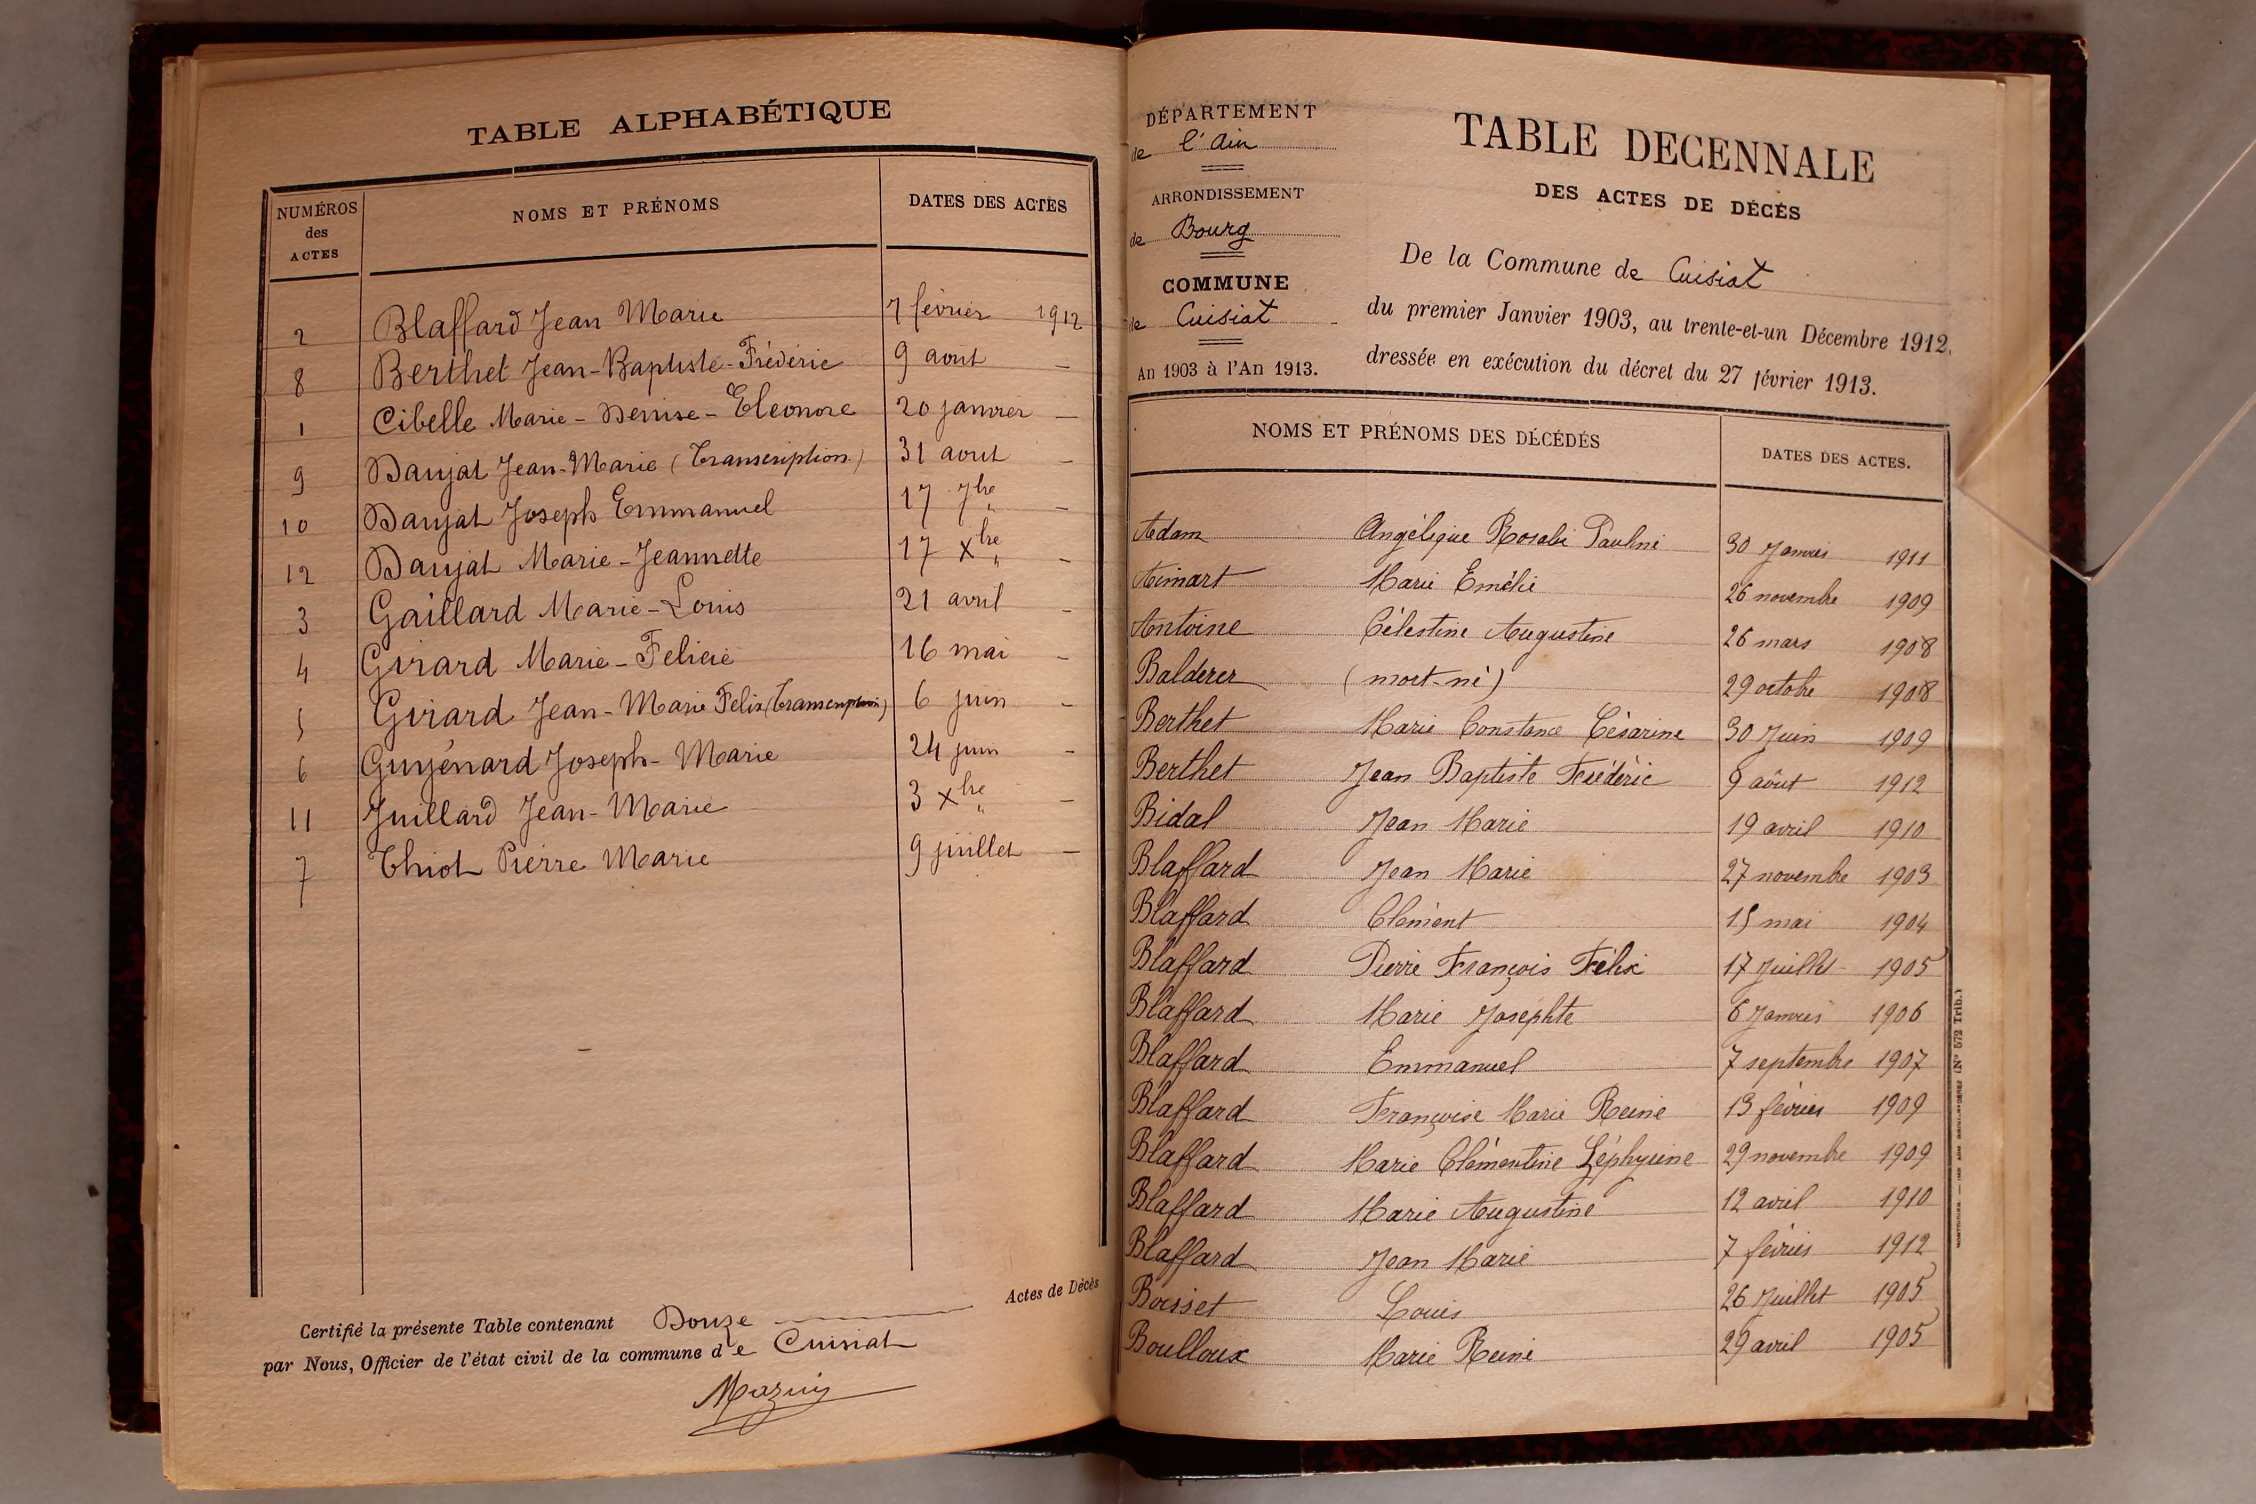 TABLE ALPHABÉTIQUE
NUMÉROS des ACTES NOMS ET PRÉNOMS DATES DES ACTES
2 Blaffard Jean Marie 7 février 1912
8 Berthet Jean-Baptiste-Frédéric 9 août —
1 Cibelle Marie-Denise-Eleonore 20 janvier —
9 Daujat Jean-Marie (Transcription) 31 aout —
10 Daujat Joseph Emmanuel 17 7bre —
12 Daujat Marie-Jeannette 17 Xbre —
3 Gaillard Marie-Louis 21 avril —
4 Girard Marie-Felicie 16 mai —
5 Girard Jean-Marie Felix (Transcription) 6 juin —
6 Guyénard Joseph-Marie 24 juin —
11 Juillard Jean-Marie 3 Xbre —
7 Thiot Pierre Marie 9 juillet —
Certifié la présente Table contenant Douze Actes de Décès
par Nous, Officier de l'état civil de la commune de Cuisiat
DÉPARTEMENT
de l'Ain
ARRONDISSEMENT
de Bourg
COMMUNE
de Cuisiat
An 1903 à l'An 1913.
TABLE DECENNALE
DES ACTES DE DÉCÉS
De la Commune de Cuisiat
du premier Janvier 1903, au trente-et-un Décembre 1912,
dressée en exécution du décret du 27 février 1913.
NOMS ET PRÉNOMS DES DÉCÉDÉS DATES DES ACTES.
Adam Angélique Rosalie Pauline 30 Janvier 1911
Aimart Marie Emélie 26 novembre 1909
Antoine Célestine Augustine 26 mars 1908
Balderer (mort-né) 29 octobre 1908
Berthet Marie Constance Césarine 30 Juin 1909
Berthet Jean Baptiste Frédéric 9 août 1912
Bidal Jean Marie 19 avril 1910
Blaffard Jean Marie 27 novembre 1903
Blaffard Clément 15 mai 1904
Blaffard Pierre François Félix 17 Juillet 1905
Blaffard Marie Josephte 6 Janvier 1906
Blaffard Emmanuel 7 septembre 1907
Blaffard Françoise Marie Reine 13 février 1909
Blaffard Marie Clémentine Zéphyrine 29 novembre 1909
Blaffard Marie Augustine 12 avril 1910
Blaffard Jean Marie 7 février 1912
Boisset Louis 26 Juillet 1905
Boulloux Marie Reine 29 avril 1905
(No 572 Trib.)